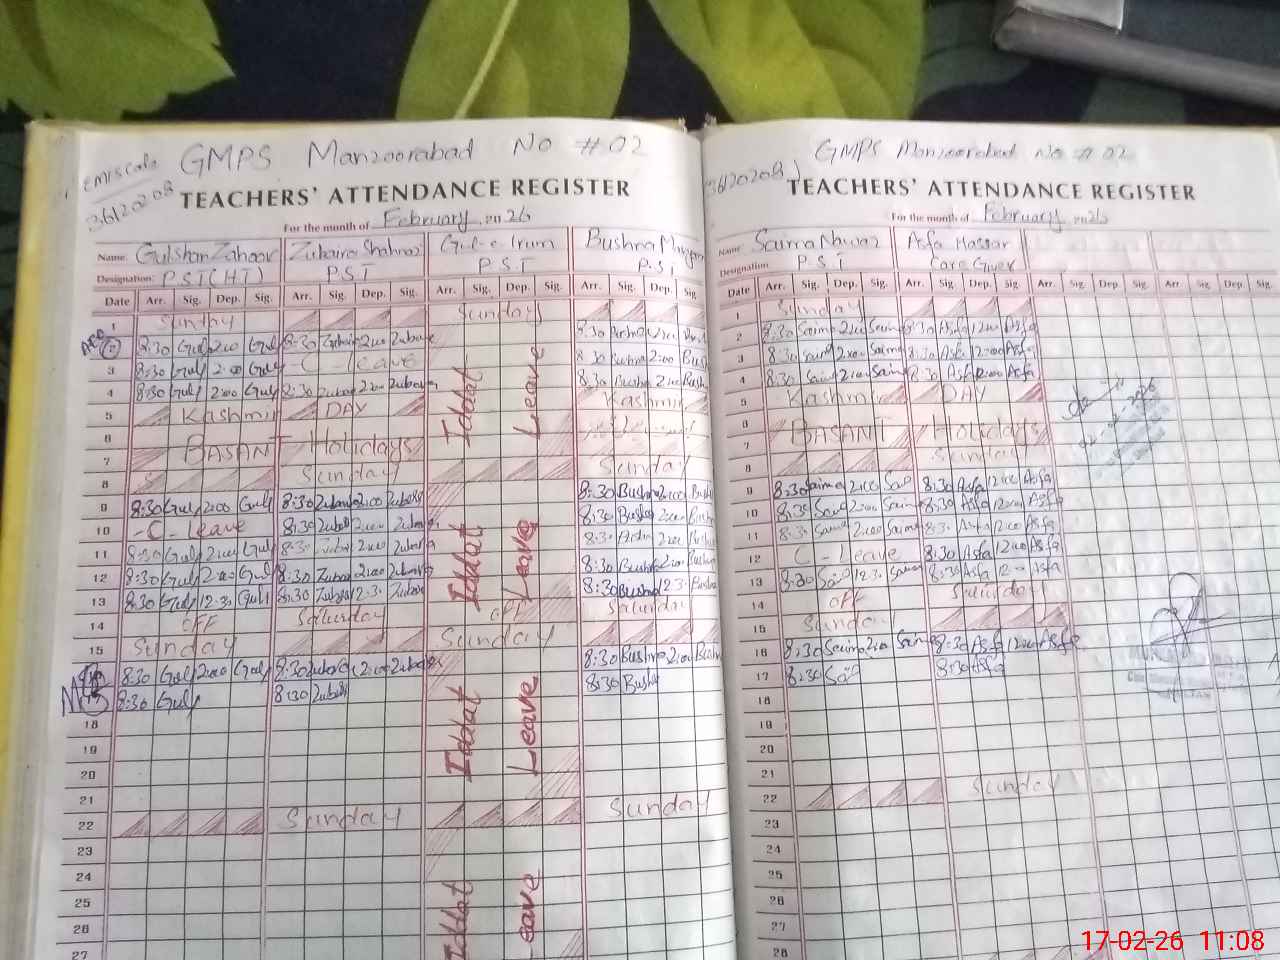 GMPS Manzoorabad No # 02
TEACHERS' ATTENDANCE REGISTER
For the month of February 2026
Name Gulshan Zahoor Zubaira Shahnaz Gul-e Irum Bushra Maryam
Designation: P.S.T (H.T) P.S.T P.S.T P.S.T
Date Arr. Sig. Dep. Sig. Arr. Sig. Dep. Sig. Arr. Sig. Dep. Sig. Arr. Sig. Dep. Sig
1 Sunday Sunday
8:30 Gul 2:00 Gul 8:30 2:00 8:30 Bushra 2:00
3 8:30 Gul 2:00 Gul C - leave 8:30 Bushra 2:00 Bush
4 8:30 Gul 2:00 Gul 8:30 Zubair 2:00 Zubaira 8:30 Bushra 2:00 Bush
5 Kashmir DAY Kashmir
6
7 BASANT Holidays
8 Sunday Sunday
9 8:30 Gul 2:00 Gul 8:30 Zubair 2:00 Zubaira 8:30 Bushra 2:00 Bushr
10 - C - Leave 8:30 Zubair 2:00 Zubaira 8:30 Bushra 2:00 Bushr
11 8:30 Gul 2:00 Gul 8:30 Zubair 2:00 Zubaira 8:30 2:00 Bushr
12 8:30 Gul 2:00 Gul 8:30 Zubair 2:00 Zubaira 8:30 Bushra 2:00 Bushr
13 8:30 Gul 12:30 Gul 8:30 Zubair 12:30 Zubair 8:30 Bushra 12:30 Bushra
14 OFF Saturday OFF Saturday
15 Sunday Sunday
8:30 Gul 2:00 Gul 8:30 Zubair 2:00 Zubaira 8:30 Bushra 2:00 Bushr
8:30 Gul 8:30 Zubair 8:30 Bushra
18
19
20
21
22 Sunday Sunday
23
24
25
26
27
Iddat Leave
Iddat Leave
Iddat Leave
Iddat Leave
GMPS Manzoorabad No # 02
TEACHERS' ATTENDANCE REGISTER
For the month of February 2026
Name: Saima Nawaz Asfa Hassan
Designation: P.S.T Care Giver
Date Arr. Sig. Dep. Sig. Arr. Sig. Dep. Sig. Arr. Sig. Dep. Sig. Arr. Sig. Dep. Sig.
1 Sunday
2 8:30 Saima 2:00 Saima 8:30 Asfa 12:00 Asfa
3 8:30 Saima 2:00 Saima 8:30 Asfa 12:00 Asfa
4 8:30 Saima 2:00 Saima 8:30 Asfa 12:00 Asfa
5 Kashmir DAY
6
7 BASANT Holidays
8 Sunday
9 8:30 Saima 2:00 Saima 8:30 Asfa 12:00 Asfa
10 8:30 Saima 2:00 Saima 8:30 Asfa 12:00 Asfa
11 8:30 Saima 2:00 Saima 8:30 Asfa 12:00 Asfa
12 C - Leave 8:30 Asfa 12:00 Asfa
13 8:30 Saima 12:30 Saima 8:30 Asfa 12:00 Asfa
14 OFF Saturday
15 Sunday
16 8:30 Saima 2:00 Saima 8:30 Asfa 12:00 Asfa
17 8:30 Saima 8:30 Asfa
18
19
20
21
22 Sunday
23
24
25
26
27
28
17-02-26 11:08